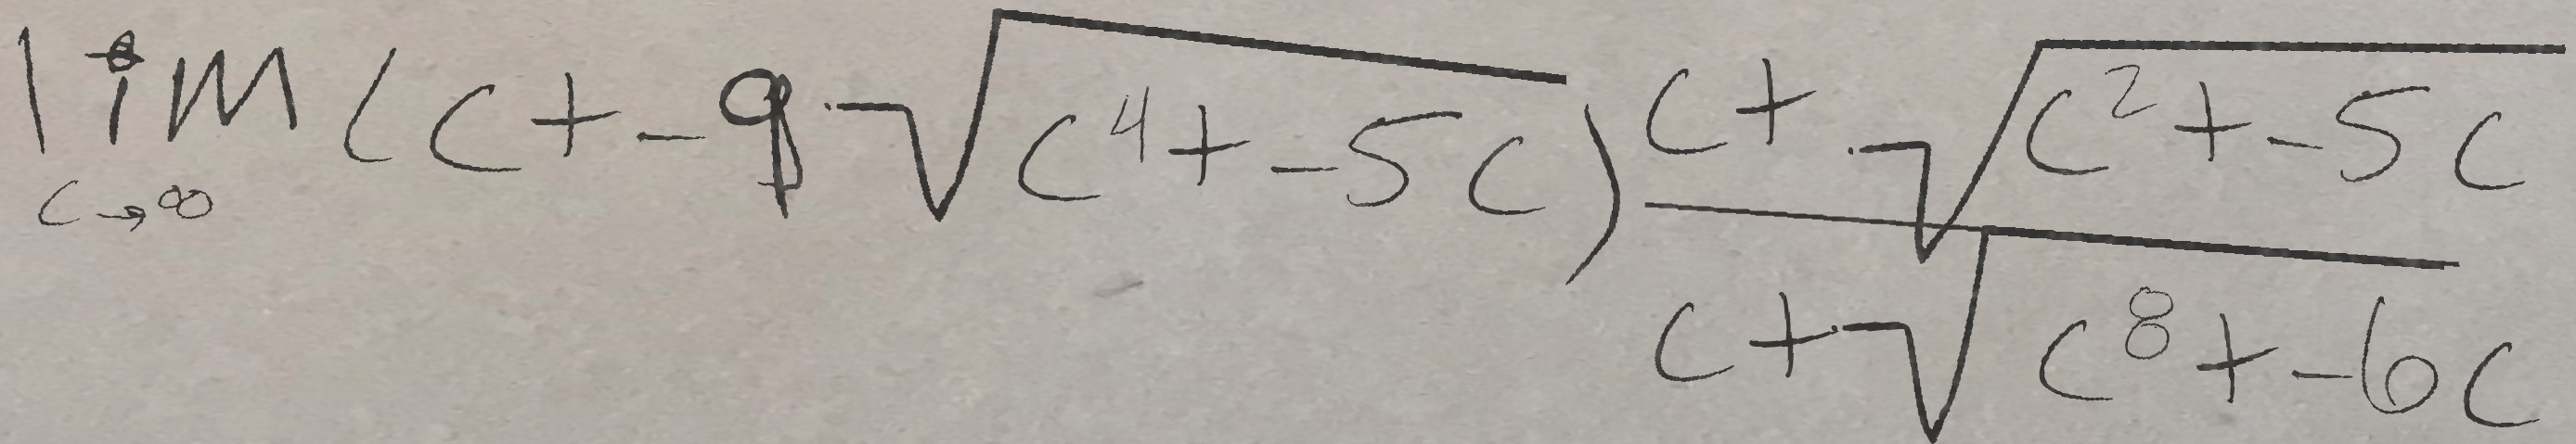 \lim_{c \to \infty} (c + -9 \sqrt{c^4 + -5c}) \frac{c + \sqrt{c^2 + -5c}}{c + \sqrt{c^8 + -6c}}